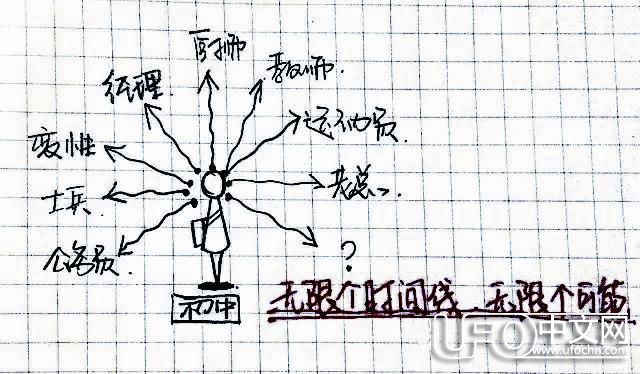 医师
教师.
经理.
运动员
变性
老总、
士兵
公务员.
?
初中
无限个时间线.无限个可能
UFO中文网
www.ufochn.com